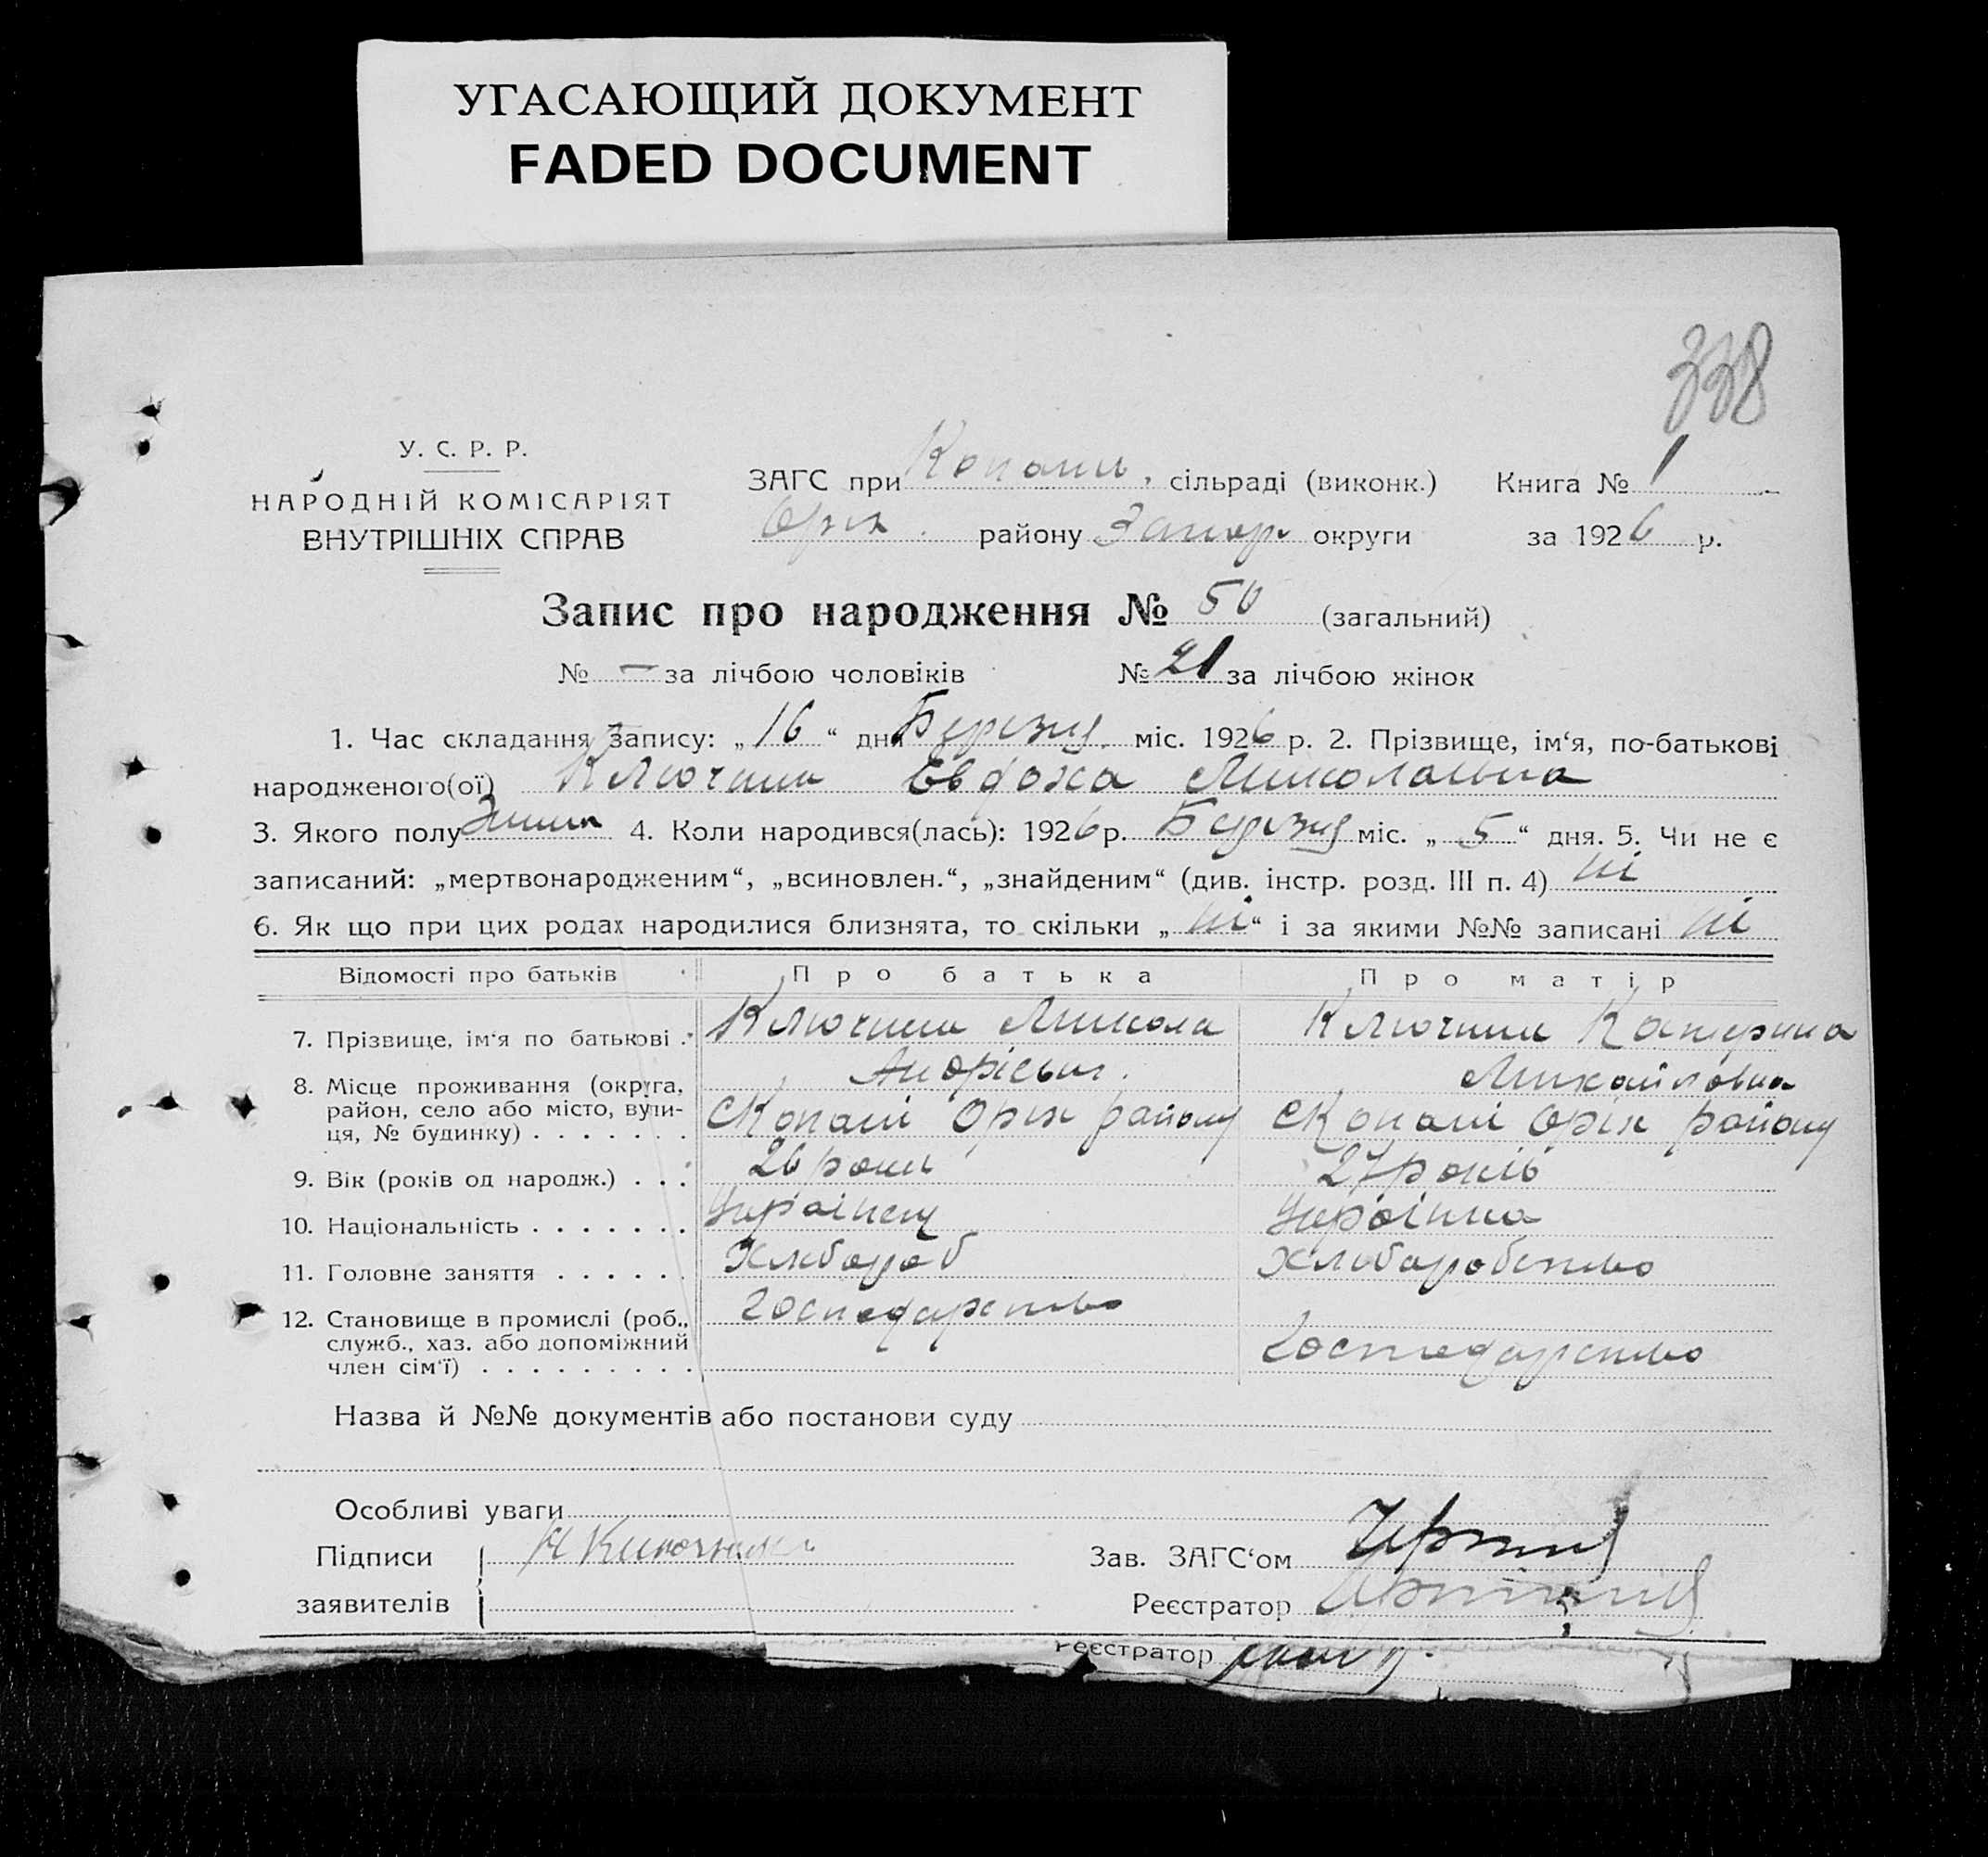 УГАСАЮЩИЙ ДОКУМЕНТ
FADED DOCUMENT
338
У. С. Р. Р.
НАРОДНІЙ КОМІСАРІЯТ
ВНУТРІШНІХ СПРАВ
ЗАГС при Копани, сільраді (виконк.) Книга № 1
Оріх. району Запор. округи за 1926 р.
Запис про народження № 50 (загальний)
№ — за лічбою чоловіків № 21 за лічбою жінок
1. Час складання запису: „16“ дня Березня міс. 1926 р. 2. Прізвище, ім‘я, по-батькові
народженого(ої) Ключник Евдоха Миколаівна
3. Якого полу Жіння 4. Коли народився(лась): 1926 р. Березня міс. „5“ дня. 5. Чи не є
записаний: „мертвонародженим“, „всиновлен.“, „знайденим“ (див. інстр. розд. III п. 4) ні
6. Як що при цих родах народилися близнята, то скільки „ні“ і за якими №№ записані ні
Відомості про батьків Про батька Про матір
7. Прізвище, ім‘я по батькові . Ключник Микола Ключник Катерина
Андрієвич. Михайловна
8. Місце проживання (округа,
район, село або місто, вули-
ця, № будинку) . . . . . . . с Копані Оріх району с Копані Оріх району
9. Вік (років од народж.) . . . 26 роки 27 років
10. Національність . . . . . . . Украінец Украінка
11. Головне заняття . . . . . . Хлібороб Хліборобство
12. Становище в промислі (роб., господарство
служб., хаз. або допоміжний
член сім‘ї) . . . . . . . . . господарство
Назва й №№ документів або постанови суду
Особливі уваги
Підписи Н Ключник Зав. ЗАГС‘ом
заявителів Реєстратор
Реєстратор